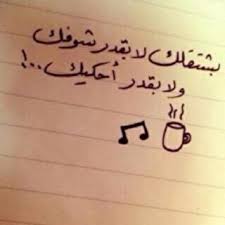 بشتقلك لا بقدر شوفك
ولا بقدر أحكيك ..!